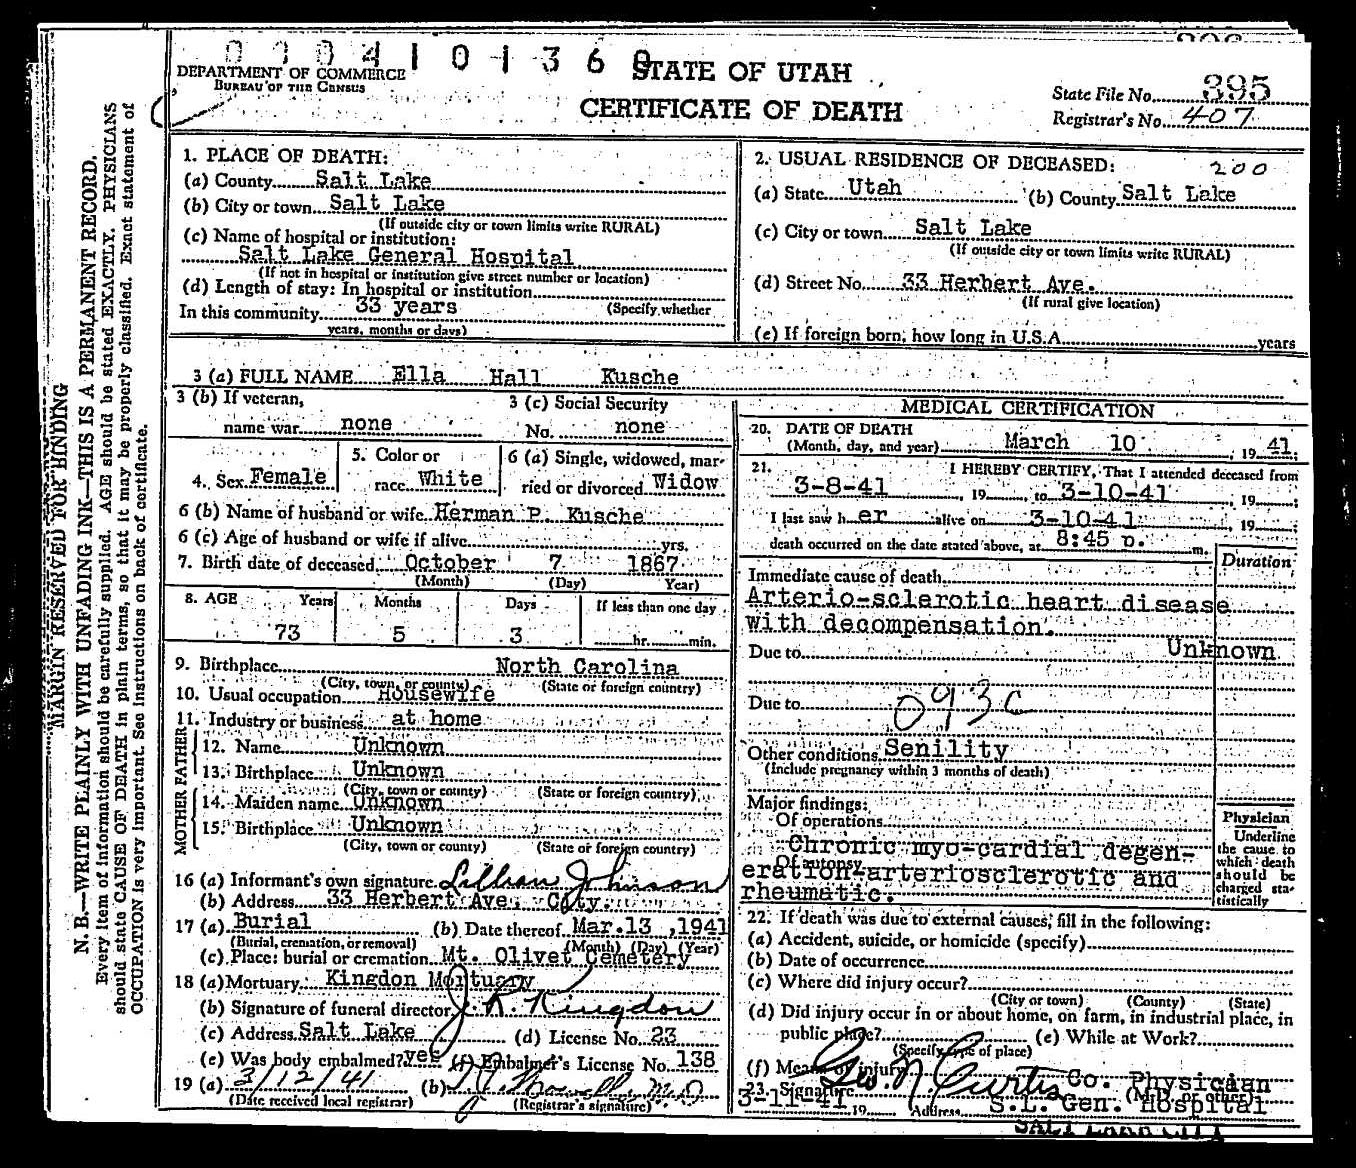 0 0 0 4 1 0 1 3 6 0
DEPARTMENT OF COMMERCE
BUREAU OF THE CENSUS
STATE OF UTAH
CERTIFICATE OF DEATH
State File No. 395
Registrar's No. 407
MARGIN RESERVED FOR BINDING
N. B.—WRITE PLAINLY WITH UNFADING INK—THIS IS A PERMANENT RECORD.
Every item of information should be carefully supplied. AGE should be stated EXACTLY. PHYSICIANS
should state CAUSE OF DEATH in plain terms, so that it may be properly classified. Exact statement of
OCCUPATION is very important. See instructions on back of certificate.
1. PLACE OF DEATH:
(a) County Salt Lake
(b) City or town Salt Lake
(If outside city or town limits write RURAL)
(c) Name of hospital or institution:
Salt Lake General Hospital
(If not in hospital or institution give street number or location)
(d) Length of stay: In hospital or institution
In this community 33 years (Specify whether
years, months or days)
2. USUAL RESIDENCE OF DECEASED: 200
(a) State Utah (b) County Salt Lake
(c) City or town Salt Lake
(If outside city or town limits write RURAL)
(d) Street No. 33 Herbert Ave.
(If rural give location)
(e) If foreign born, how long in U.S.A. years
3 (a) FULL NAME Ella Hall Kusche
3 (b) If veteran,
name war none
3 (c) Social Security
No. none
4. Sex Female
5. Color or
race White
6 (a) Single, widowed, mar-
ried or divorced Widow
6 (b) Name of husband or wife Herman P. Kusche
6 (c) Age of husband or wife if alive yrs.
7. Birth date of deceased October 7 1867
(Month) (Day) Year)
8. AGE Years Months Days If less than one day
73 5 3 hr. min.
9. Birthplace North Carolina
(City, town, or county) (State or foreign country)
10. Usual occupation Housewife
11. Industry or business at home
FATHER
12. Name Unknown
13. Birthplace Unknown
(City, town or county) (State or foreign country)
MOTHER
14. Maiden name Unknown
15. Birthplace Unknown
(City, town or county) (State or foreign country)
16 (a) Informant's own signature Lillian Johnson
(b) Address 33 Herbert Ave. City.
17 (a) Burial (b) Date thereof Mar.13 ,1941
(Burial, cremation, or removal) (Month) (Day) (Year)
(c) Place: burial or cremation Mt. Olivet Cemetery
18 (a) Mortuary Kingdon Mortuary
(b) Signature of funeral director J. R. Kingdon
(c) Address Salt Lake (d) License No. 23
(e) Was body embalmed? yes (f) Embalmer's License No. 138
19 (a) 3/12/41 (b) M.D
(Date received local registrar) (Registrar's signature)
MEDICAL CERTIFICATION
20. DATE OF DEATH
(Month, day, and year) March 10 , 19 41
21. I HEREBY CERTIFY, That I attended deceased from
3-8-41 , 19 to 3-10-41 , 19 ;
I last saw h er alive on 3-10-41 , 19 ;
death occurred on the date stated above, at 8:45 p. m.
Duration
Immediate cause of death
Arterio-sclerotic heart disease
with decompensation.
Due to Unknown
Due to 093c
Other conditions Senility
(Include pregnancy within 3 months of death)
Major findings:
Of operations
Chronic myo-cardial degen-
Of autopsy
eration-arteriosclerotic and
rheumatic.
Physician
Underline
the cause to
which death
should be
charged sta-
tistically
22. If death was due to external causes, fill in the following:
(a) Accident, suicide, or homicide (specify)
(b) Date of occurrence
(c) Where did injury occur?
(City or town) (County) (State)
(d) Did injury occur in or about home, on farm, in industrial place, in
public place? (e) While at Work?
(Specify type of place)
(f) Means of injury
23. Signature Geo. N. Curtis Co. Physician
(M.D. or other)
3-11-41 19 Address S.L. Gen. Hospital
SALT LAKE CITY